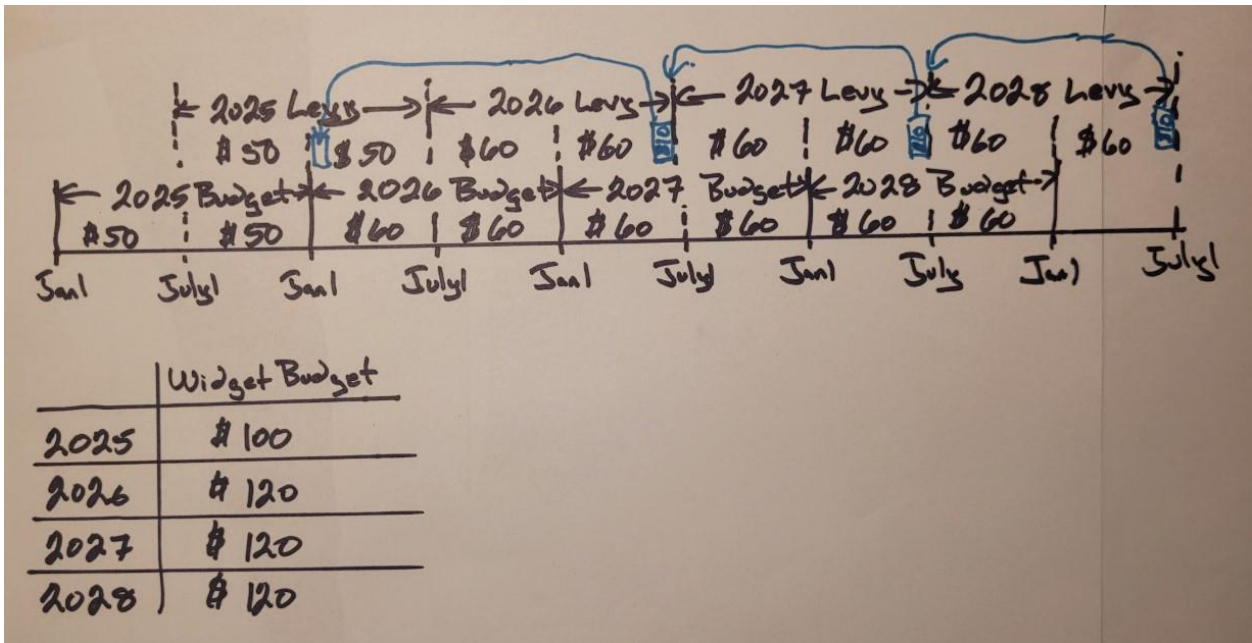 2025 Levy 2026 Levy 2027 Levy 2028 Levy
$50 $50 $60 $60 $10 $60 $60 $10 $60 $60 $10
2025 Budget 2026 Budget 2027 Budget 2028 Budget
$50 $50 $60 $60 $60 $60 $60 $60
Jan1 July1 Jan1 July1 Jan1 July1 Jan1 July Jan1 July1
Widget Budget
2025 $100
2026 $120
2027 $120
2028 $120